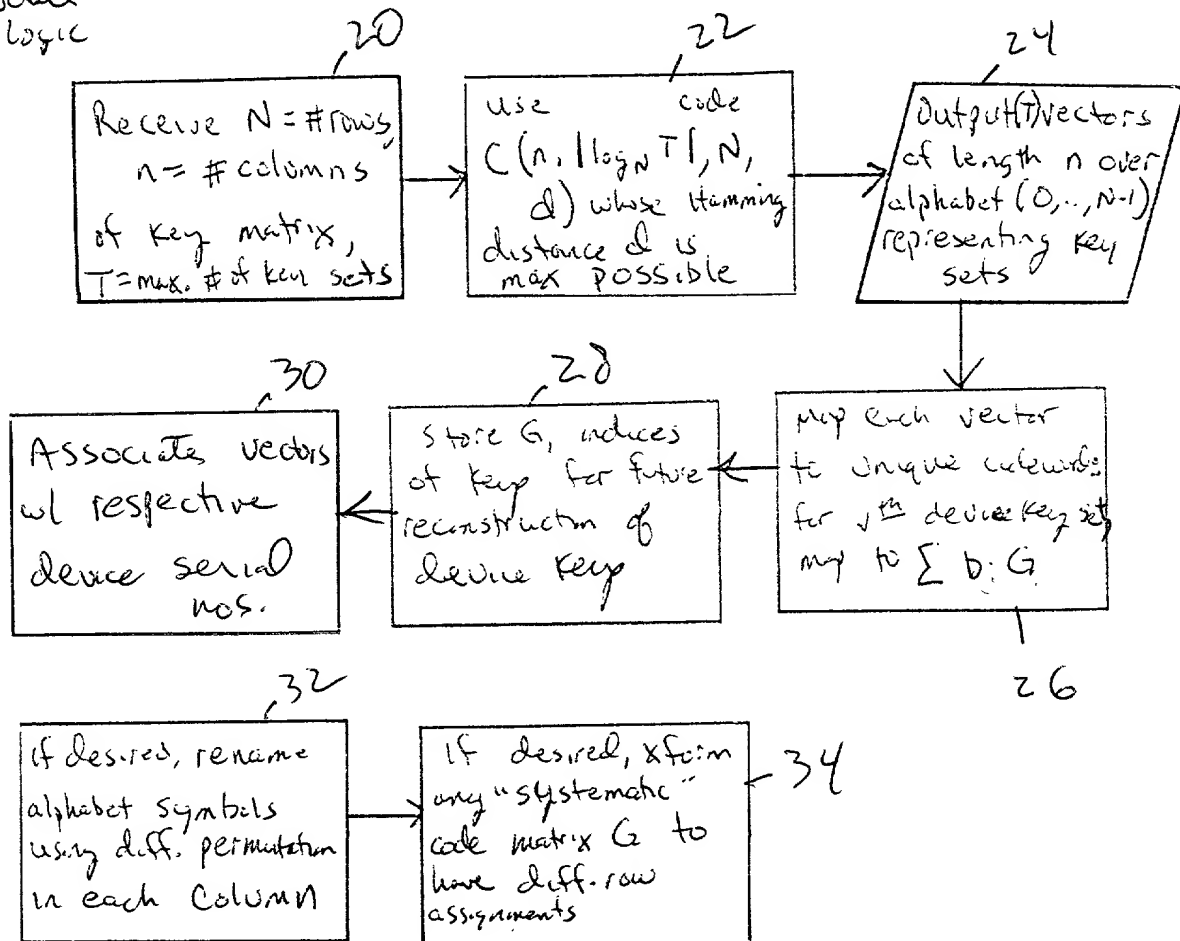 logic
20
Receive N = # rows,
n = # columns
of key matrix,
T = max. # of key sets
22
use code
C (n, ⌈log_N T⌉, N,
d) whose Hamming
distance d is
max possible
24
Output (T) vectors
of length n over
alphabet (0,..,N-1)
representing key
sets
30
Associates vectors
w/ respective
device serial
nos.
28
Store G, indices
of keys for future
reconstruction of
device keys
Map each vector
to unique codewords
for vth device key set,
map to ∑ b_i G
26
32
If desired, rename
alphabet symbols
using diff. permutation
in each column
If desired, xform
any "systematic"
code matrix G to
have diff. row
assignments
34